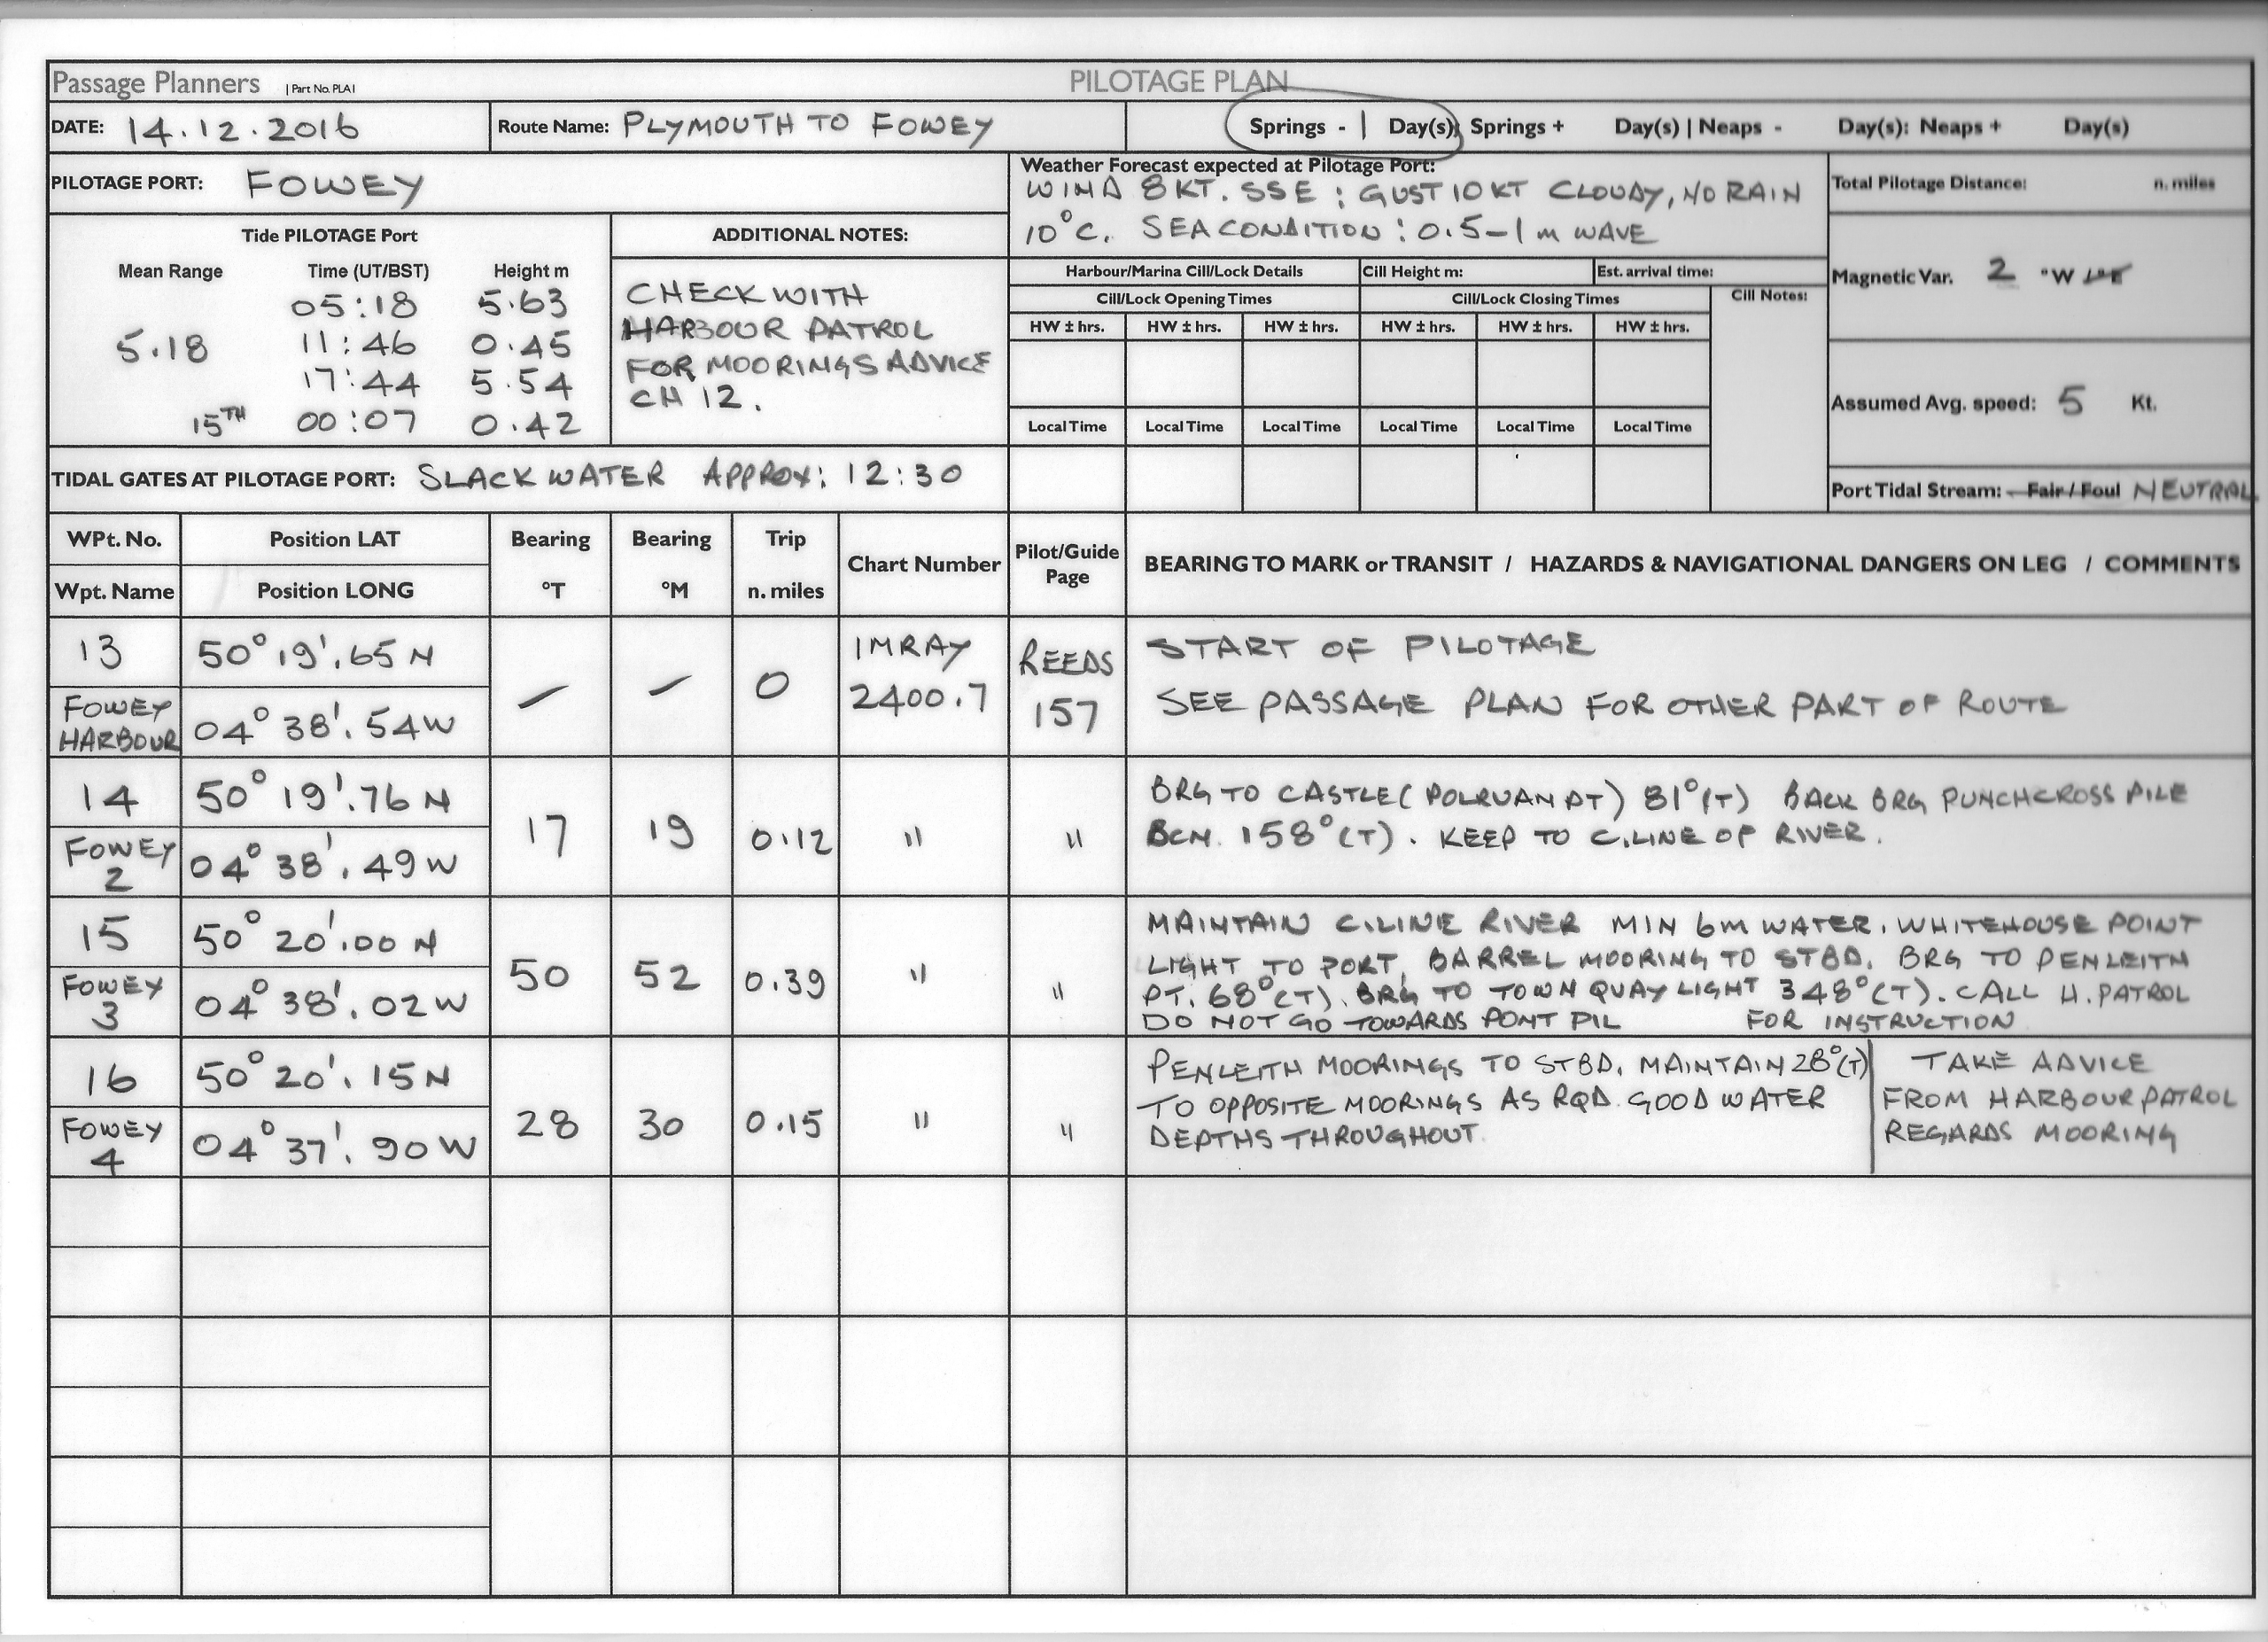 Passage Planners | Part No. PLA1 PILOTAGE PLAN
DATE: 14.12.2016 Route Name: PLYMOUTH TO FOWEY Springs - 1 Day(s): Springs + Day(s) | Neaps - Day(s): Neaps + Day(s)
PILOTAGE PORT: FOWEY
Weather Forecast expected at Pilotage Port:
WIND 8KT. SSE : GUST 10KT CLOUDY, NO RAIN
10°C. SEA CONDITION : 0.5-1m WAVE
Total Pilotage Distance: n. miles
Tide PILOTAGE Port
Mean Range Time (UT/BST) Height m
05:18 5.63
5.18 11:46 0.45
17:44 5.54
15TH 00:07 0.42
ADDITIONAL NOTES:
CHECK WITH
HARBOUR PATROL
FOR MOORINGS ADVICE
CH 12.
Harbour/Marina Cill/Lock Details Cill Height m: Est. arrival time:
Cill/Lock Opening Times Cill/Lock Closing Times Cill Notes:
HW ± hrs. HW ± hrs. HW ± hrs. HW ± hrs. HW ± hrs. HW ± hrs.
Local Time Local Time Local Time Local Time Local Time Local Time
Magnetic Var. 2 °W
Assumed Avg. speed: 5 Kt.
Port Tidal Stream: Fair / Foul NEUTRAL
TIDAL GATES AT PILOTAGE PORT: SLACK WATER APPROX: 12:30
WPt. No. Position LAT Bearing Bearing Trip Chart Number Pilot/Guide Page BEARING TO MARK or TRANSIT / HAZARDS & NAVIGATIONAL DANGERS ON LEG / COMMENTS
Wpt. Name Position LONG °T °M n. miles
13 50° 19'.65 N - - 0 IMRAY 2400.7 REEDS 157 START OF PILOTAGE
FOWEY HARBOUR 04° 38'.54W SEE PASSAGE PLAN FOR OTHER PART OF ROUTE
14 50° 19'.76 N 17 19 0.12 " " BRG TO CASTLE (POLRUAN PT) 81°(T) BACK BRG PUNCHCROSS PILE
FOWEY 2 04° 38'.49W BCN. 158°(T). KEEP TO C.LINE OF RIVER.
15 50° 20'.00 N 50 52 0.39 " " MAINTAIN C.LINE RIVER MIN 6m WATER. WHITEHOUSE POINT
FOWEY 3 04° 38'.02W LIGHT TO PORT, BARREL MOORING TO STBD. BRG TO PENLEITH
PT. 68°(T). BRG TO TOWN QUAY LIGHT 348°(T). CALL H. PATROL
DO NOT GO TOWARDS PONT PIL FOR INSTRUCTION
16 50° 20'.15N 28 30 0.15 " " PENLEITH MOORINGS TO STBD. MAINTAIN 28°(T) TAKE ADVICE
FOWEY 4 04° 37'.90W TO OPPOSITE MOORINGS AS RQD. GOOD WATER FROM HARBOUR PATROL
DEPTHS THROUGHOUT. REGARDS MOORING